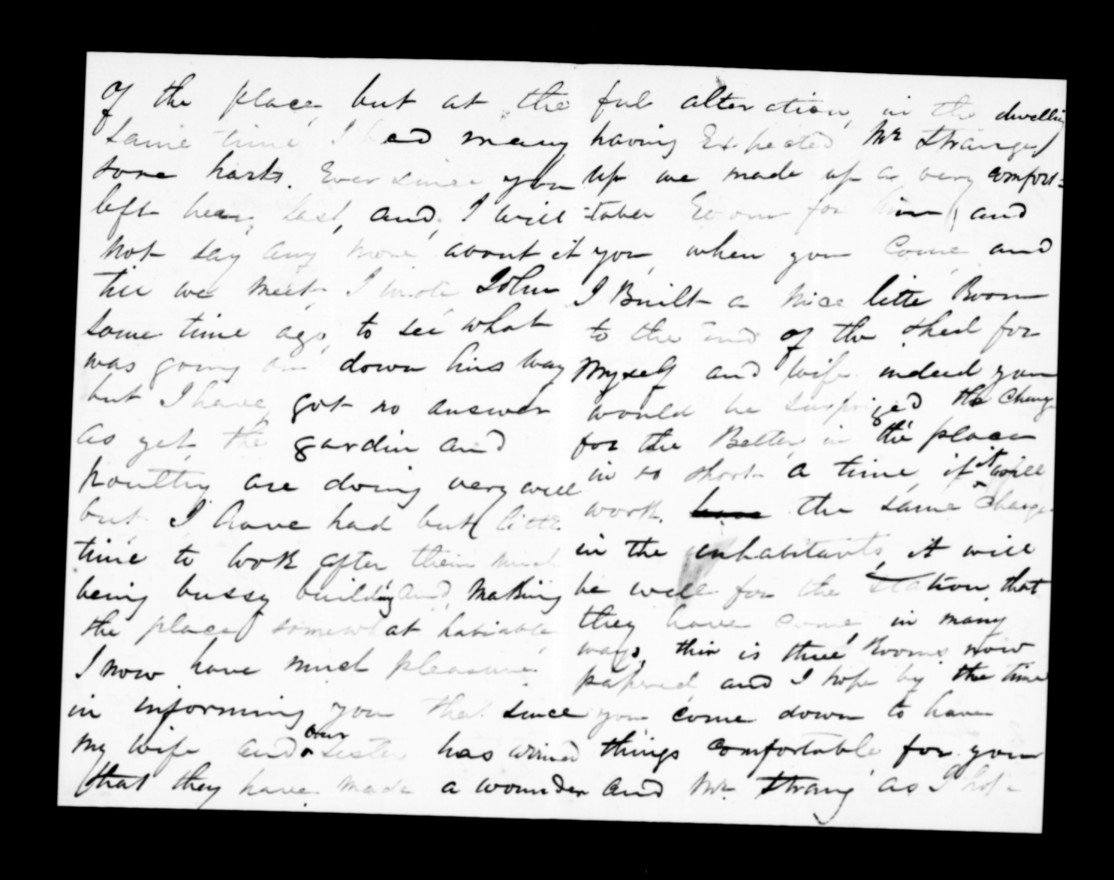 of the place, but at the
same time I had many
sore harts. Ever since you
left hear last, and, I will
not say any more about it
till we meet, I wrote John
some time ago, to see what
was going on down hiss way
but I have got no answer
as yet, the gardin and
poultry are doing very well
but I have had but little
time to look after them much
being bussy building and making
the place somewhat habiable
I now have much pleasure
in informing you that since
my wife and our sister has arrived
that they have made a wounder
ful alteration, in the dwelling
having Expected Mr Strange
up we made up a very comfort=
=table Room for him, and
you, when you come, and
I Built a nice litte Room
to the End of the shed for
Myself and wife. indeed you
would be surprized the change
for the Better, in the place
in so short a time, if it will
work the same change
in the inhabitants, it will
be well for the Station, that
they have come, in many
ways, thir is three Rooms now
papered and I hope by the time
you come down to have
things comfortable for you
and Mr Strang as I